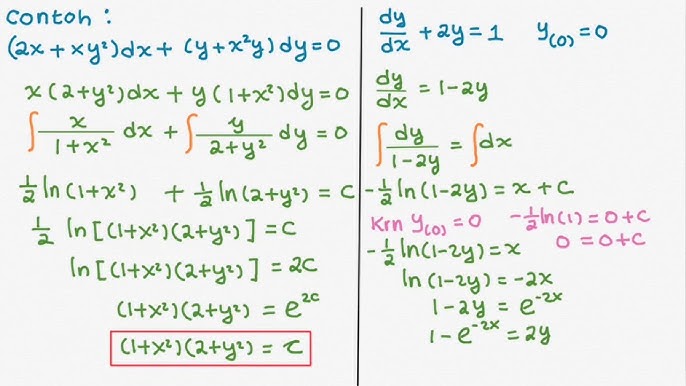 Contoh :
(2x + xy²)dx + (y + x²y) dy = 0
x(2+y²)dx + y(1+x²)dy = 0
∫ x/(1+x²) dx + ∫ y/(2+y²) dy = 0
½ ln(1+x²) + ½ ln(2+y²) = C
½ ln[(1+x²)(2+y²)] = C
ln[(1+x²)(2+y²)] = 2C
(1+x²)(2+y²) = e^{2C}
(1+x²)(2+y²) = τ
dy/dx + 2y = 1 y₍₀₎ = 0
dy/dx = 1-2y
∫ dy/(1-2y) = ∫ dx
-½ ln(1-2y) = x + C
Krn y₍₀₎ = 0 -½ ln(1) = 0 + C
0 = 0 + C
-½ ln(1-2y) = x
ln(1-2y) = -2x
1-2y = e^{-2x}
1-e^{-2x} = 2y